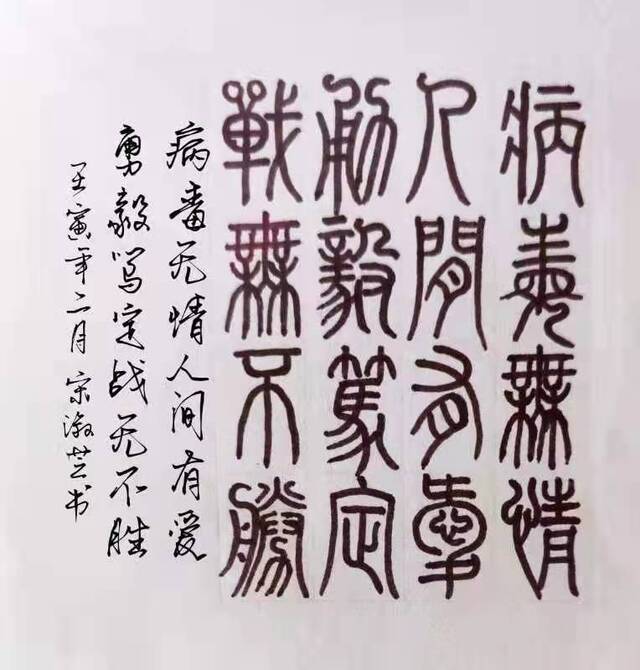 病毒無情
人間有愛
勇毅篤定
戰無不勝
病毒无情人间有爱
勇毅笃定战无不胜
壬寅年二月宋淑芝书